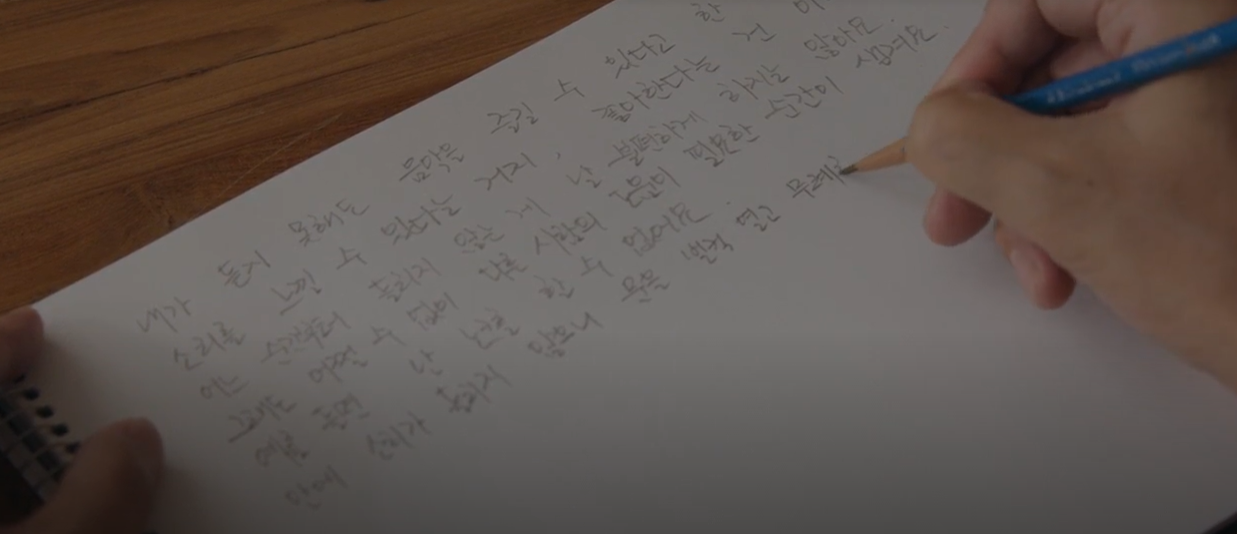 내가 듣지 못해도 음악을 즐길 수 있다고 한
소리를 느낄 수 있다는 거지, 좋아한다는 건
어느 순간부터 들리지 않는 게 날 불편하게 하지는 않아요.
그래도 어쩔 수 없이 다른 사람의 도움이 필요한 순간이 생겨요.
예를 들면 난 노크를 할 수 없어요.
안에 소리가 들리지 않으니 문을 벌컥 열고 무례